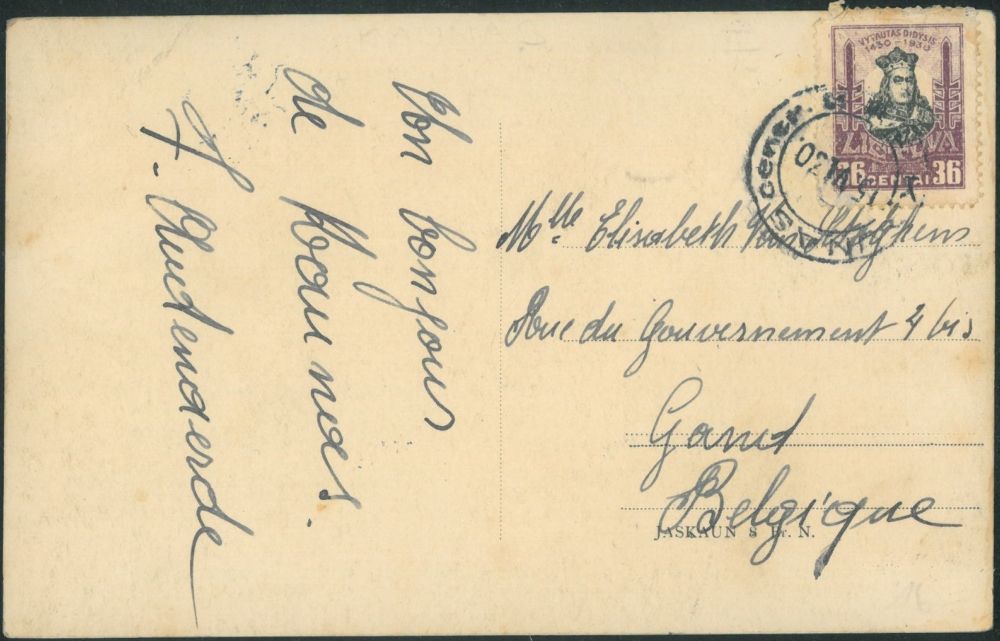 Bon bonjour
de Kaunas.
A. Audenaerde
VYTAUTAS DIDYSIS
1430-1930
LIETUVA
36 CENTAI 36
centr.
Mlle Elisabeth
Rue du Gouvernement 4 bis
Gand
Belgique
JASKAUN S Fr. N.